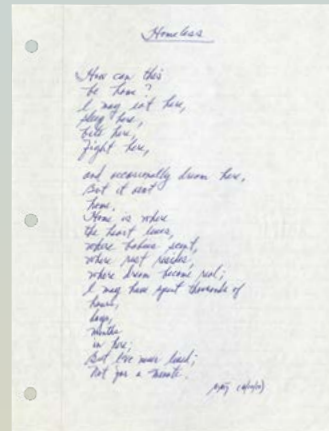 Homeless
How can this
be home?
I may eat here,
sleep here,
here,
fight here,
and occasionally dream here,
But it isn't
home.
Home is where
the heart lives,
where
where rest resides,
where dream become real;
I may have spent thousands of
hours,
days,
months
in here;
But I've never lived;
Not for a minute.